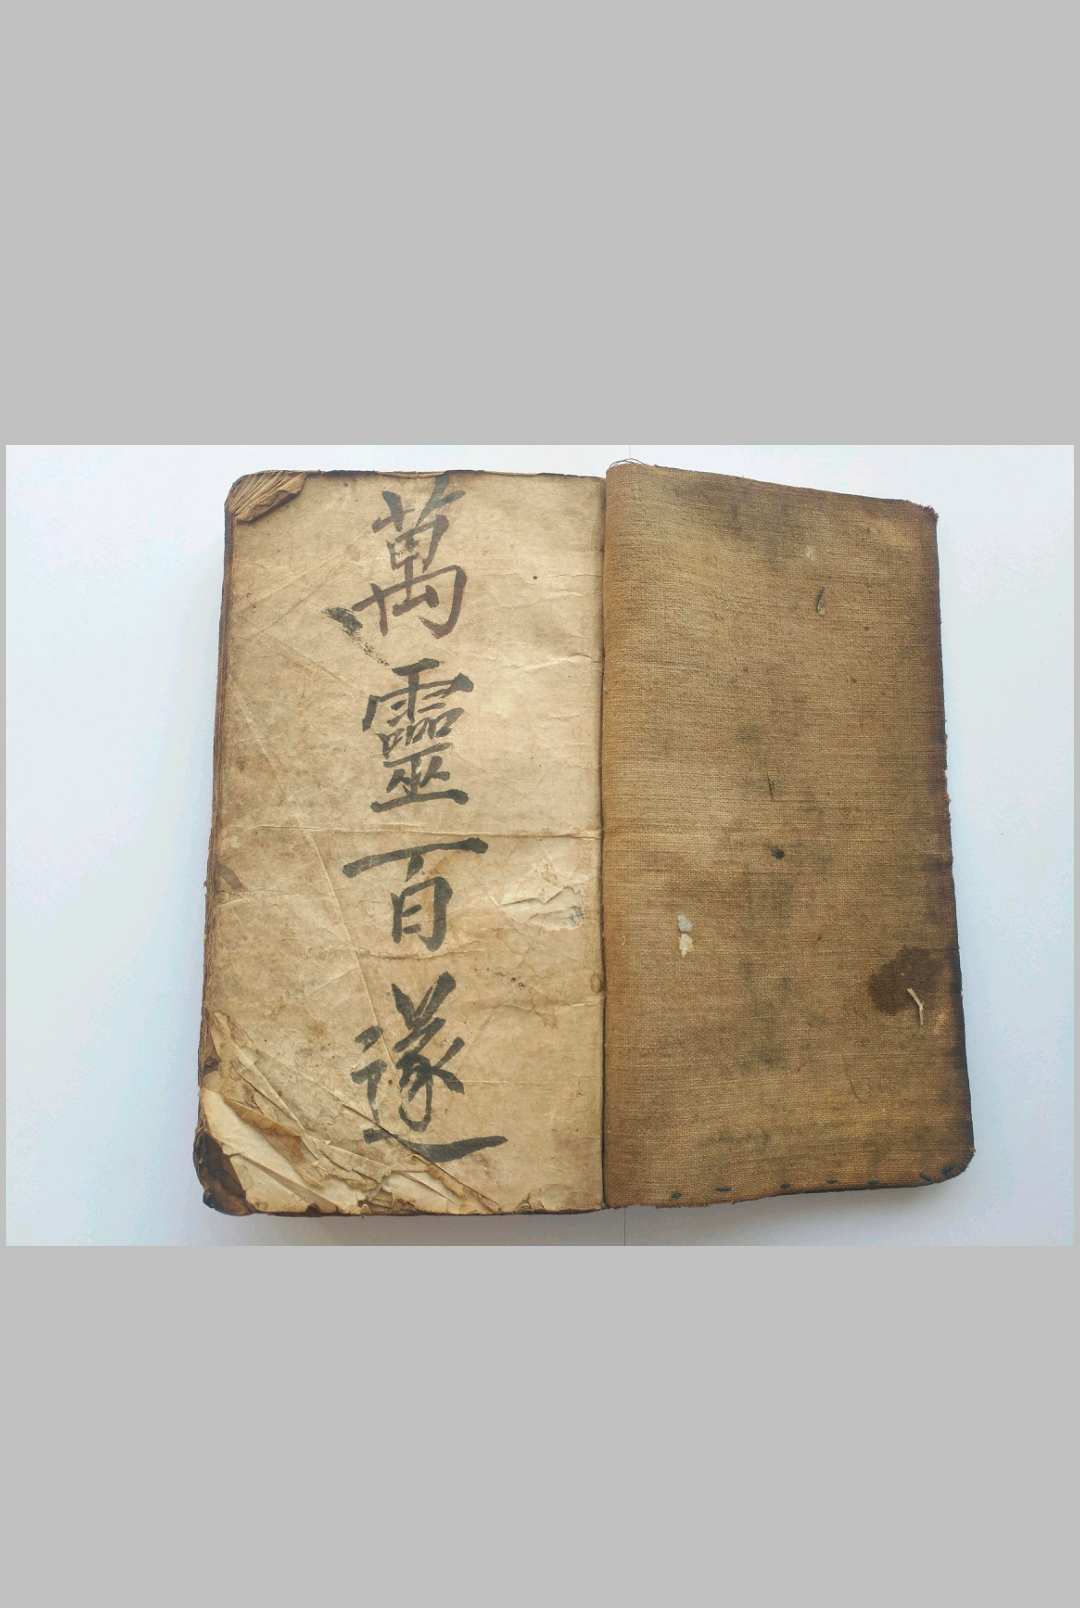 萬靈百遂